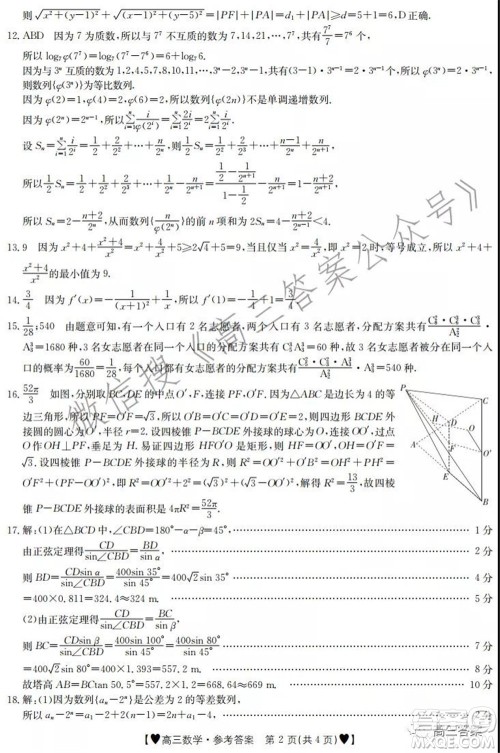 则√(x²+(y−1)²)+√((x−1)²+(y−5)²)=|PF|+|PA|=d₁+|PA|≥d=5+1=6,D正确.
12. ABD 因为7为质数,所以与7⁷不互质的数为7,14,21,…,7⁷,共有7⁷/7=7⁶个,
所以log₇φ(7⁷)=log₇(7⁷−7⁶)=6+log₇6.
因为与3ⁿ互质的数为1,2,4,5,7,8,10,11,…,3ⁿ−2,3ⁿ−1,共有(3−1)·3ⁿ⁻¹=2·3ⁿ⁻¹个,所以φ(3ⁿ)=2·3ⁿ⁻¹,
则数列{φ(3ⁿ)}为等比数列.
因为φ(2)=1,φ(4)=2,φ(6)=2,所以数列{φ(2n)}不是单调递增数列.
因为φ(2ⁿ)=2ⁿ⁻¹,所以
设Sₙ= =1/2+2/2²+…+n/2ⁿ,则1/2Sₙ=1/2²+2/2³+…+(n−1)/2ⁿ+n/2ⁿ⁺¹,
所以1/2Sₙ=1/2+1/2²+1/2³+…+1/2ⁿ−n/2ⁿ⁺¹=(1/2−1/2ⁿ⁺¹)/(1−1/2)−n/2ⁿ⁺¹=1−(n+2)/2ⁿ⁺¹,
所以Sₙ=2−(n+2)/2ⁿ,从而数列{n/φ(2ⁿ)}的前n项和为2Sₙ=4−(n+2)/2ⁿ⁻¹<4.
13. 9 因为x²+4+(x²+4)/x²=x²+4/x²+5≥2√4+5=9,当且仅当x²=4/x²,即x²=2时,等号成立,所以x²+4+
(x²+4)/x²的最小值为9.
14. 3/4 因为f′(x)=−1/(x+1)²+1/x,所以f′(1)=−1/4+1=3/4.
15. 1/28;540 由题意可知,有一个入口有2名志愿者,两个入口有3名志愿者,分配方案共有
·A₃³=1680种,3名女志愿者在同一个入口的分配方案共有C₅²A₃³=60种,故3名女志愿者被分配在同一个入
口的概率为60/1680=1/28,每个入口都有女志愿者的分配方案共有 ·A₃³=540种.
16. 52π/3 如图,分别取BC,DE的中点O′,F,连接PF,O′F.因为△ABC是边长为4的等
边三角形,所以PF=O′F=√3,所以O′B=O′C=O′D=O′E=2,则四边形BCDE外
接圆的圆心为O′,半径r=2.设四棱锥P−BCDE外接球的球心为O,连接OO′,过点
O作OH⊥PF,垂足为H.易证四边形HFO′O是矩形,则HF=OO′,OH=O′F=
√3.设四棱锥P−BCDE外接球的半径为R,则R²=OO′²+O′B²=OH²+PH²=
O′F²+(PF−OO′)²,即R²=OO′²+2²=(√3)²+(√3−OO′)²,解得R²=13/3,故四棱
锥P−BCDE外接球的表面积是4πR²=52π/3.
P
C
D
H
F
O
O′
E
B
17. 解:(1)在△BCD中,∠CBD=180°−α−β=45°, 1分
由正弦定理得CD/sin∠CBD=BD/sin α, 2分
则BD=CDsin α/sin∠CBD=400sin 35°/sin 45°=400√2sin 35° 4分
≈400×0.811=324.4≈324 m. 5分
(2)由正弦定理得CD/sin∠CBD=BC/sin β,
则BC=CDsin β/sin∠CBD=400sin 100°/sin 45°=400sin 80°/sin 45° 7分
=400√2sin 80°≈400×1.393=557.2 m. 8分
故塔高AB=BCtan 50.5°=557.2×1.2=668.64≈669 m. 10分
18. 解:(1)因为数列{aₙ−2ⁿ}是公差为2的等差数列,
所以aₙ−2ⁿ=a₁−2+2(n−1)=2n+a₁−4,
♥高三数学·参考答案 第2页(共4页)♥
微信搜《高三答案公众号》
高三答案